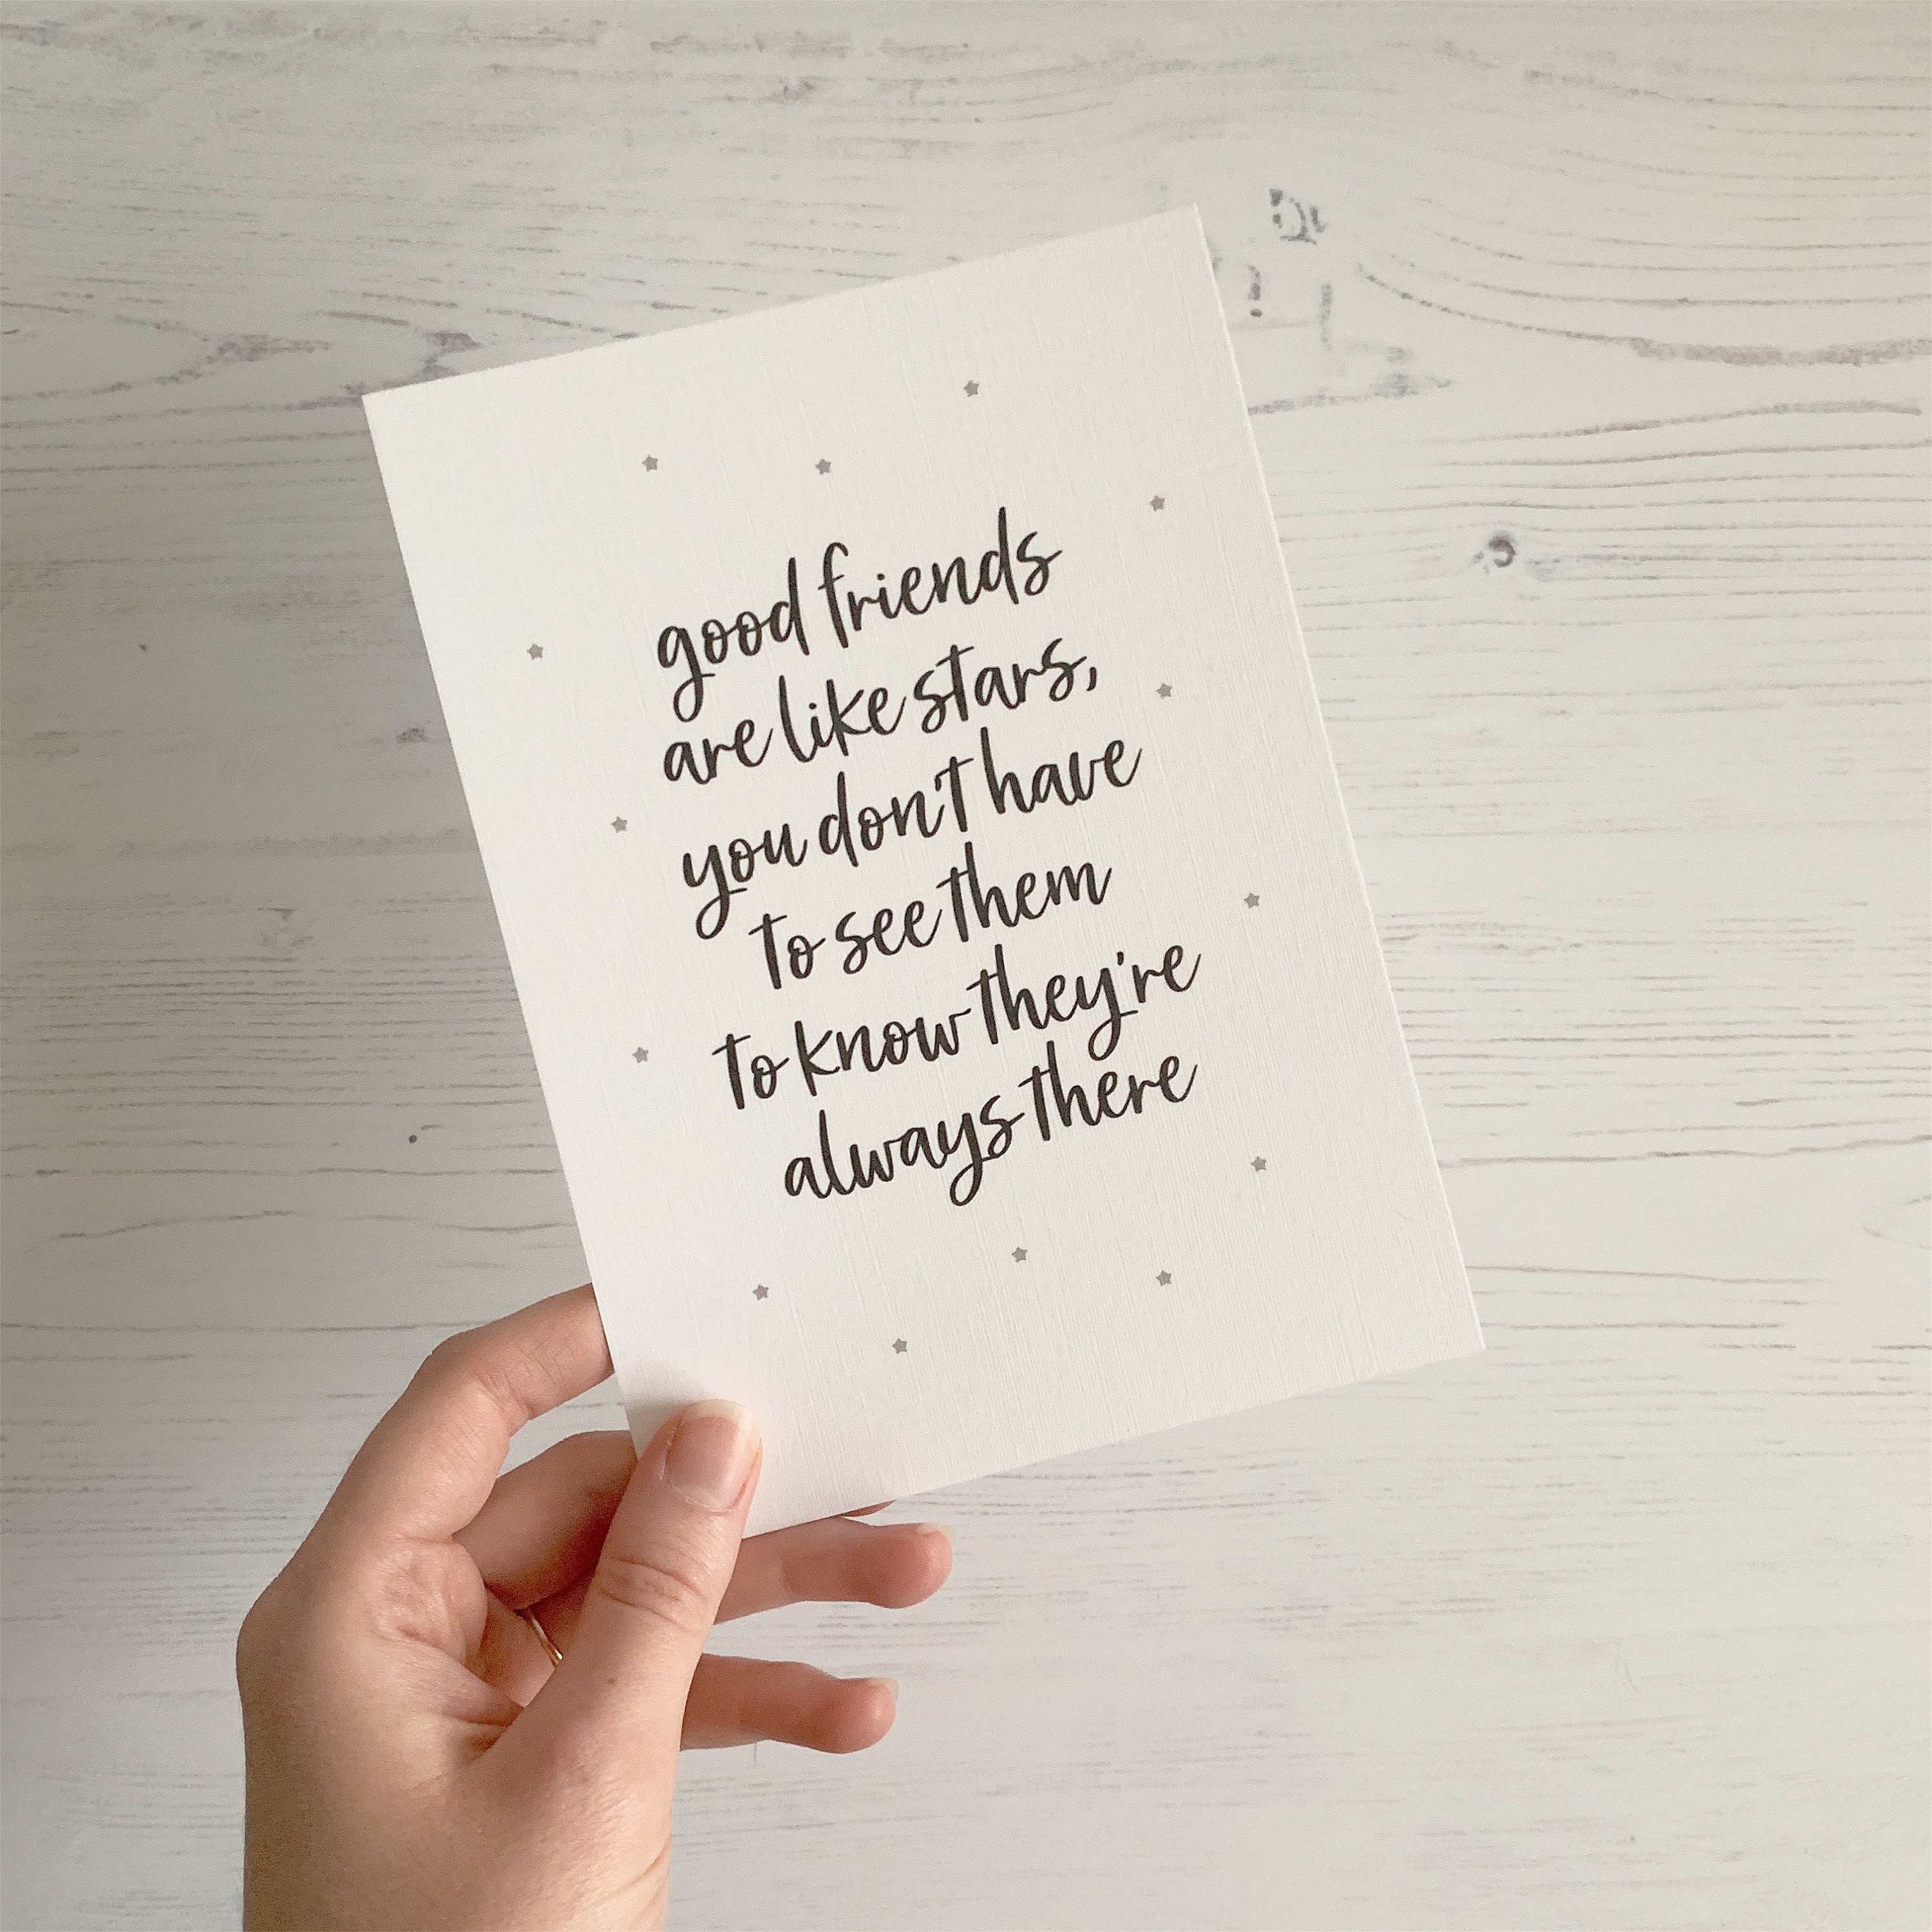 good friends
are like stars,
you don't have
to see them
to know they're
always there